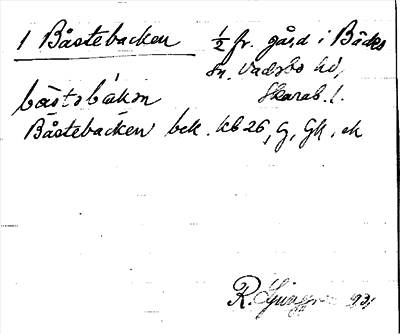 1 Båstebacken ½ fr. gård i Bäcks
sn, Vadsbo hd,
Skarab. l.
båstabàkən
Båstebacken bek. kb 26, G, Gk, ek
R. 93,